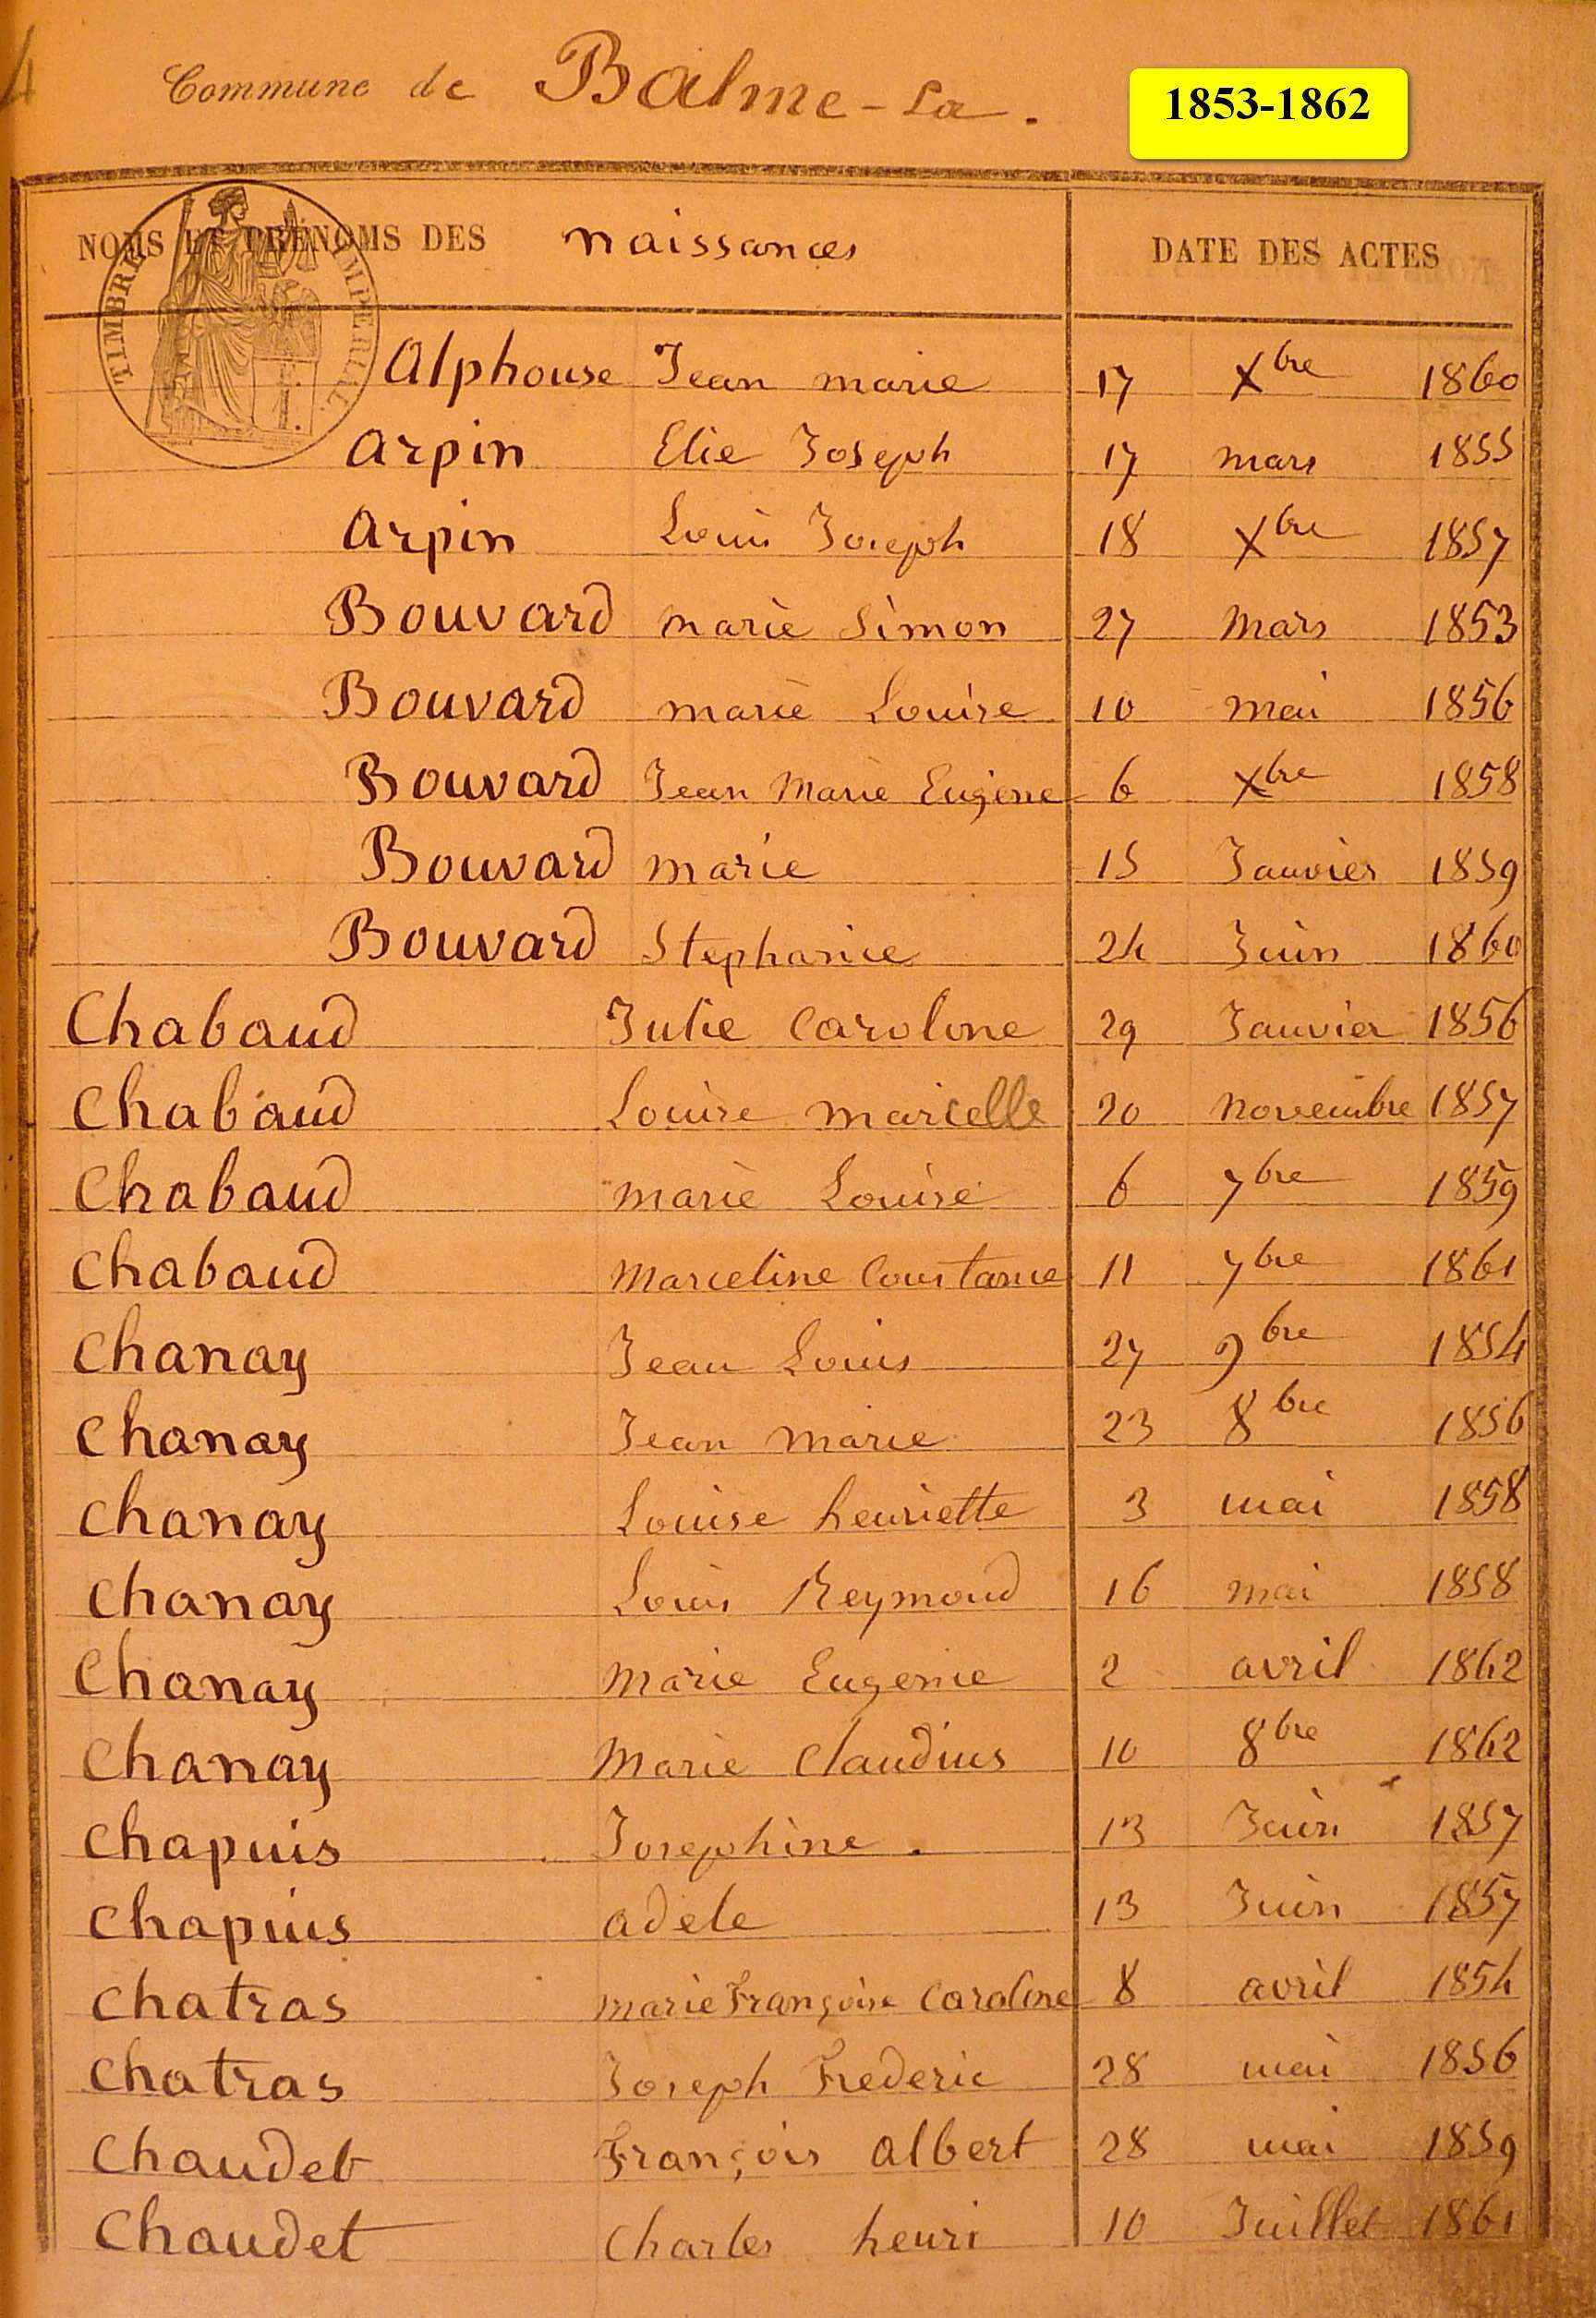 Commune de Balme-La.
1853-1862
NOMS ET PRÉNOMS DES naissances DATE DES ACTES
TIMBRE IMPÉRIAL
Alphouse Jean marie 17 Xbre 1860
Arpin Elie Joseph 17 mars 1855
Arpin Louis Joseph 18 Xbre 1857
Bouvard marie Simon 27 Mars 1853
Bouvard marie Louise 10 mai 1856
Bouvard Jean Marie Eugène 6 Xbre 1858
Bouvard marie 15 Janvier 1859
Bouvard Stephanie 24 Juin 1860
Chabaud Julie Caroline 29 Janvier 1856
Chabaud Louise marcelle 20 novembre 1857
Chabaud marie Louise 6 7bre 1859
Chabaud Marceline Constance 11 7bre 1861
Chanay Jean Louis 27 9bre 1854
Chanay Jean Marie 23 8bre 1856
Chanay Louise henriette 3 mai 1858
Chanay Louis Reymond 16 mai 1858
Chanay Marie Eugenie 2 avril 1862
Chanay Marie Claudius 10 8bre 1862
Chapuis Josephine. 13 Juin 1857
Chapuis adele 13 Juin 1857
Chatras marie Françoise Caroline 8 avril 1854
Chatras Joseph Frederic 28 mai 1856
Chaudet François albert 28 mai 1859
Chaudet Charles henri 10 Juillet 1861